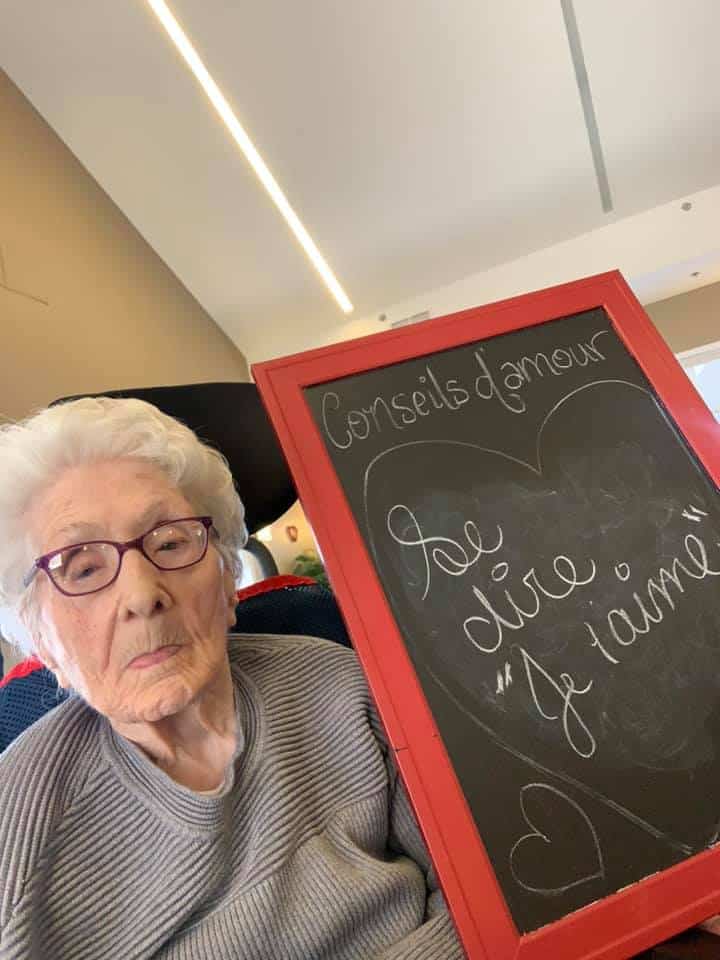 Conseils d'amour
Se
dire
"Je t'aime"